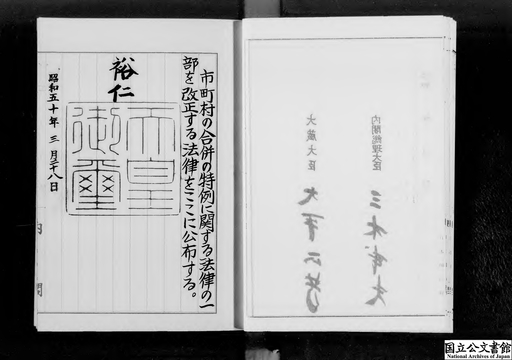 市町村の合併の特例に関する法律の一
部を改正する法律をここに公布する。
裕仁
天皇
御璽
昭和五十年三月二十八日
内閣
内閣総理大臣
三木武夫
大蔵大臣
大平正芳
国立公文書館
National Archives of Japan